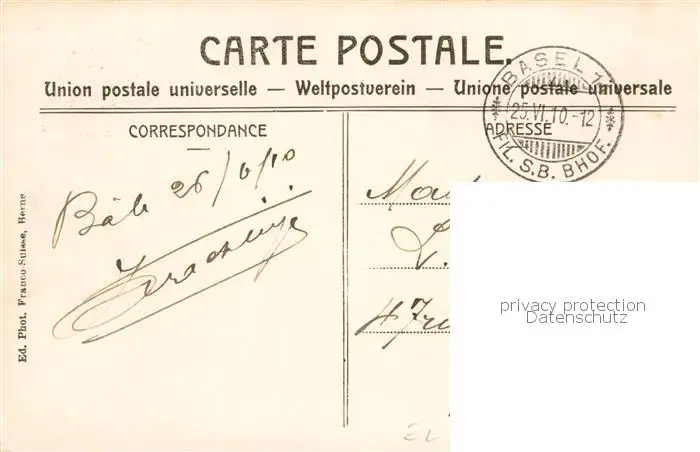 CARTE POSTALE.
Union postale universelle — Weltpostverein — Unione postale universale
BASEL 1
25.VI.10.-12
FIL. S.B. BHOF.
CORRESPONDANCE
ADRESSE
Bâle 26/6/10
Ed. Phot. Franco-Suisse, Berne
privacy protection
Datenschutz